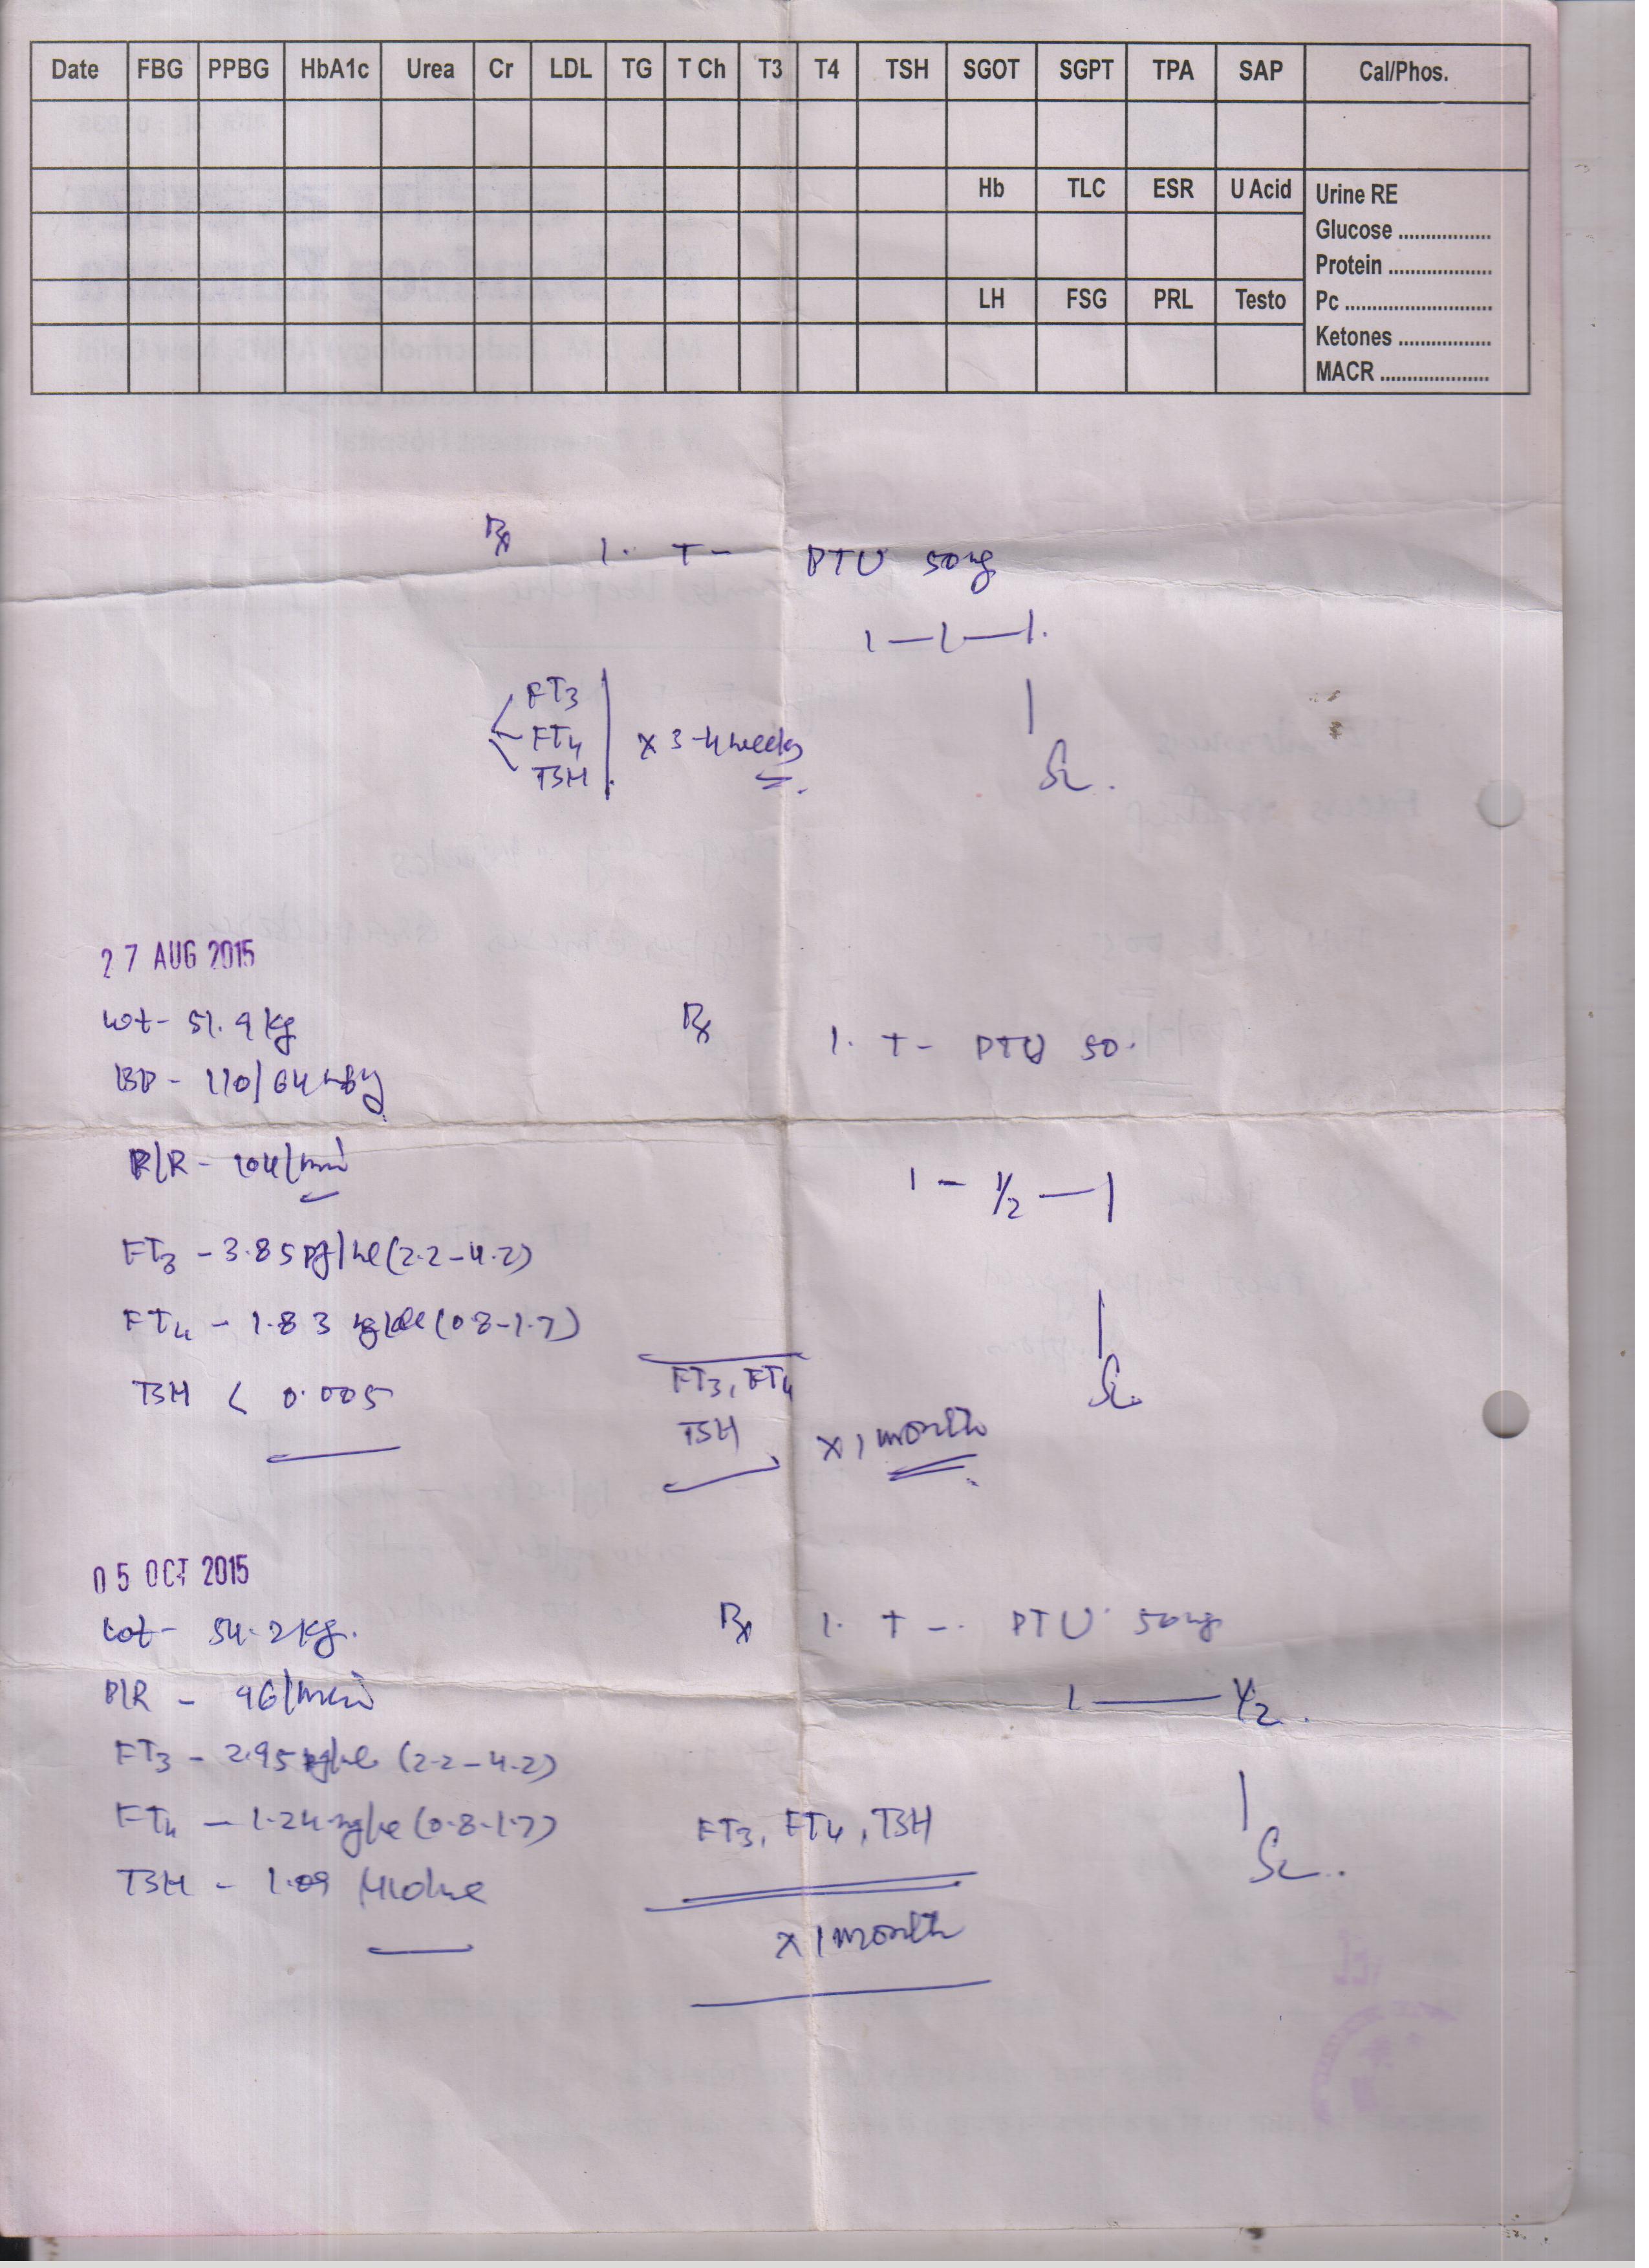 Date FBG PPBG HbA1c Urea Cr LDL TG T Ch T3 T4 TSH SGOT SGPT TPA SAP Cal/Phos.
Hb TLC ESR U Acid Urine RE
Glucose .................
Protein ...................
LH FSG PRL Testo Pc ...........................
Ketones .................
MACR ....................
Rx 1. T- PTU 50mg
1—1—1.
FT3
FT4 x 3-4 weeks
TSH
27 AUG 2015
wt- 51.9 kg
Rx 1. T- PTU 50.
BP - 110/64
P/R - 104/min
1 - 1/2 — 1
FT3 - 3.85 pg/ml (2.2-4.2)
FT4 - 1.83 ng/dl (0.8-1.7)
TSH < 0.005
FT3, FT4
TSH x 1 month
05 OCT 2015
wt- 54.2 kg.
Rx 1. T-. PTU 50mg
P/R - 96/min
1 —— 1/2.
FT3 - 2.95 pg/ml (2.2-4.2)
FT4 - 1.24 (0.8-1.7)
FT3, FT4, TSH
TSH - 1.09
x 1 month